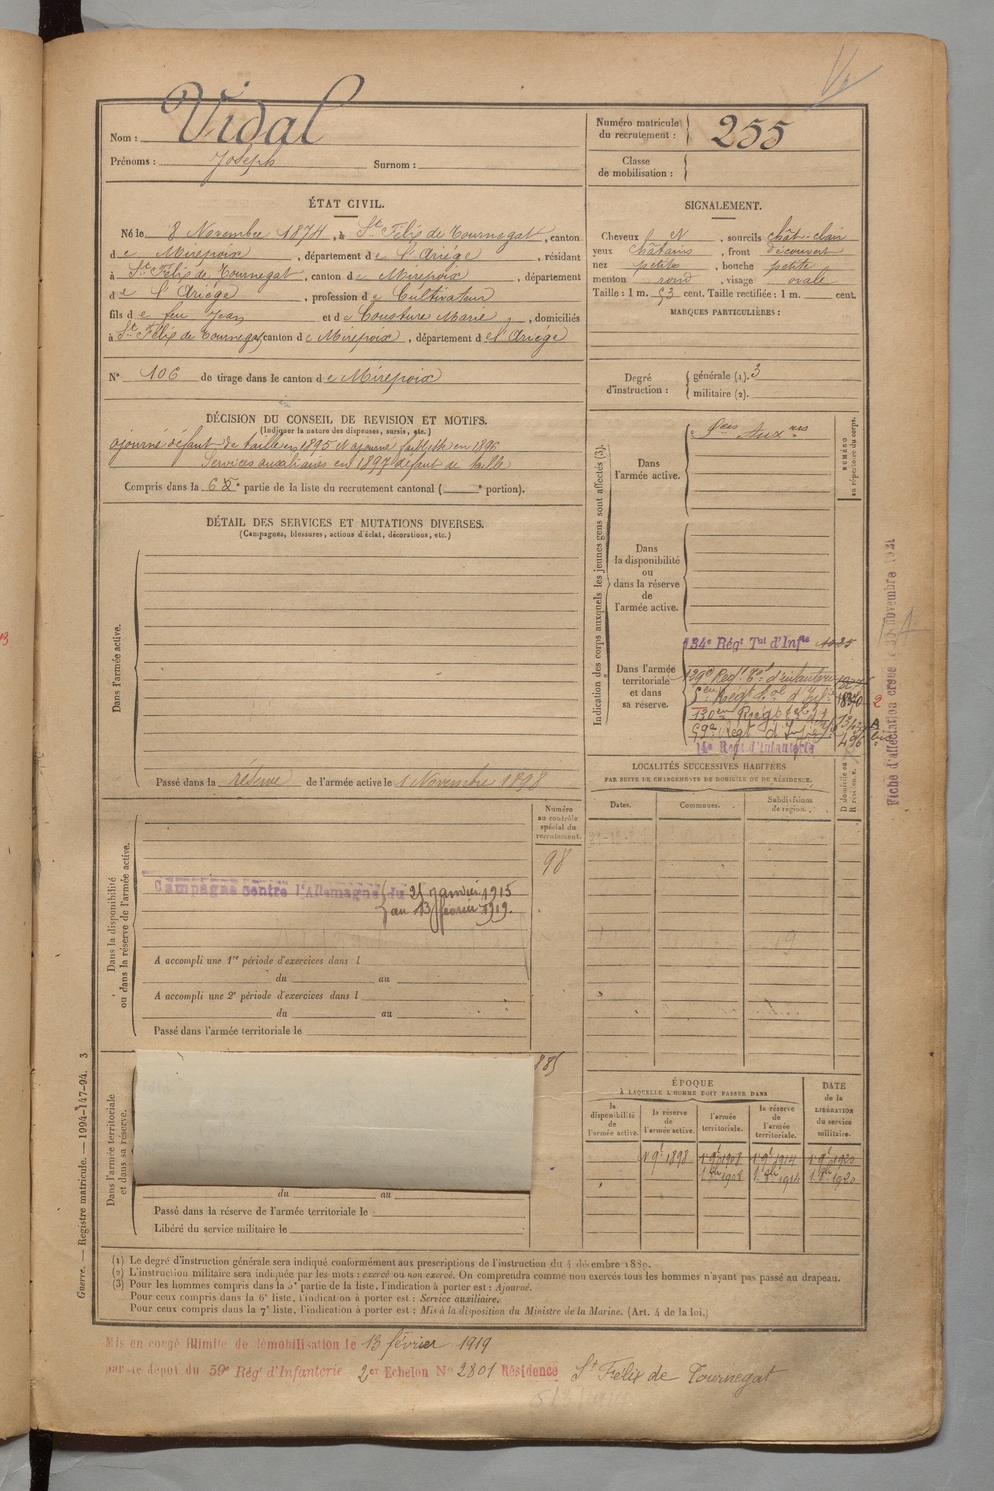 Nom : Vidal
Prénoms : Joseph Surnom :
Numéro matricule du recrutement : 255
Classe de mobilisation :
ÉTAT CIVIL.
Né le 8 Novembre 1874, à St Félix de Tournegat, canton
de Mirepoix, département de l'Ariège, résidant
à St Félix de Tournegat, canton de Mirepoix, département
de l'Ariège, profession de Cultivateur
fils de feu Jean et de Cousture Marie, domiciliés
à St Félix de Tournegat, canton de Mirepoix, département de l'Ariège
N° 106 de tirage dans le canton de Mirepoix
DÉCISION DU CONSEIL DE REVISION ET MOTIFS.
(Indiquer la nature des dispenses, sursis, etc.)
ajourné défaut de taille en 1895 et ajourné faiblesse en 1896
Services auxiliaires en 1897 défaut de taille
Compris dans la 6e partie de la liste du recrutement cantonal ( e portion).
SIGNALEMENT.
Cheveux N, sourcils chât-clair
yeux châtains, front découvert
nez petite, bouche petite
menton rond, visage ovale
Taille : 1 m. 53 cent. Taille rectifiée : 1 m. cent.
MARQUES PARTICULIÈRES :
Degré d'instruction : générale (1). 3
militaire (2).
DÉTAIL DES SERVICES ET MUTATIONS DIVERSES.
(Campagnes, blessures, actions d'éclat, décorations, etc.)
Dans l'armée active.
Passé dans la réserve de l'armée active le 1 Novembre 1898
Indication des corps auxquels les jeunes gens sont affectés (3).
NUMÉRO au répertoire du corps.
Dans l'armée active.
Aux res
Dans la disponibilité ou dans la réserve de l'armée active.
Dans l'armée territoriale et dans sa réserve.
134e Régt Tal d'Infie
129e Regt Tal d'infanterie
59e Régt d'Inf
14e Regt d'Infanterie
2
Fiche d'affectation créée le novembre 1921
LOCALITÉS SUCCESSIVES HABITÉES
PAR SUITE DE CHANGEMENTS DE DOMICILE OU DE RÉSIDENCE.
Dates. Communes. Subdivisions de région. D domicile ou R résidence.
Dans la disponibilité ou dans la réserve de l'armée active.
Numéro au contrôle spécial du recrutement.
98
Campagne contre l'Allemagne du 25 janvier 1915
au 13 février 1919.
A accompli une 1re période d'exercices dans l
du au
A accompli une 2e période d'exercices dans l
du au
Passé dans l'armée territoriale le
Dans l'armée territoriale et dans sa réserve.
885
du au
Passé dans la réserve de l'armée territoriale le
Libéré du service militaire le
ÉPOQUE
À LAQUELLE L'HOMME DOIT PASSER DANS
la disponibilité de l'armée active. la réserve de l'armée active. l'armée territoriale. la réserve de l'armée territoriale.
DATE de la LIBÉRATION du service militaire.
1898 1908 1914 1920
1908 1914 1920
(1) Le degré d'instruction générale sera indiqué conformément aux prescriptions de l'instruction du 4 décembre 1889.
(2) L'instruction militaire sera indiquée par les mots : exercé ou non exercé. On comprendra comme non exercés tous les hommes n'ayant pas passé au drapeau.
(3) Pour les hommes compris dans la 5e partie de la liste, l'indication à porter est : Ajourné.
Pour ceux compris dans la 6e liste, l'indication à porter est : Service auxiliaire.
Pour ceux compris dans la 7e liste, l'indication à porter est : Mis à la disposition du Ministre de la Marine. (Art. 4 de la loi.)
Guerre. — Registre matricule. — 1994-147-94. 3
Mis en congé illimité de démobilisation le 13 février 1919
par le dépôt du 59e Régt d'Infanterie 2er Echelon N° 2801 Résidence St Félix de Tournegat